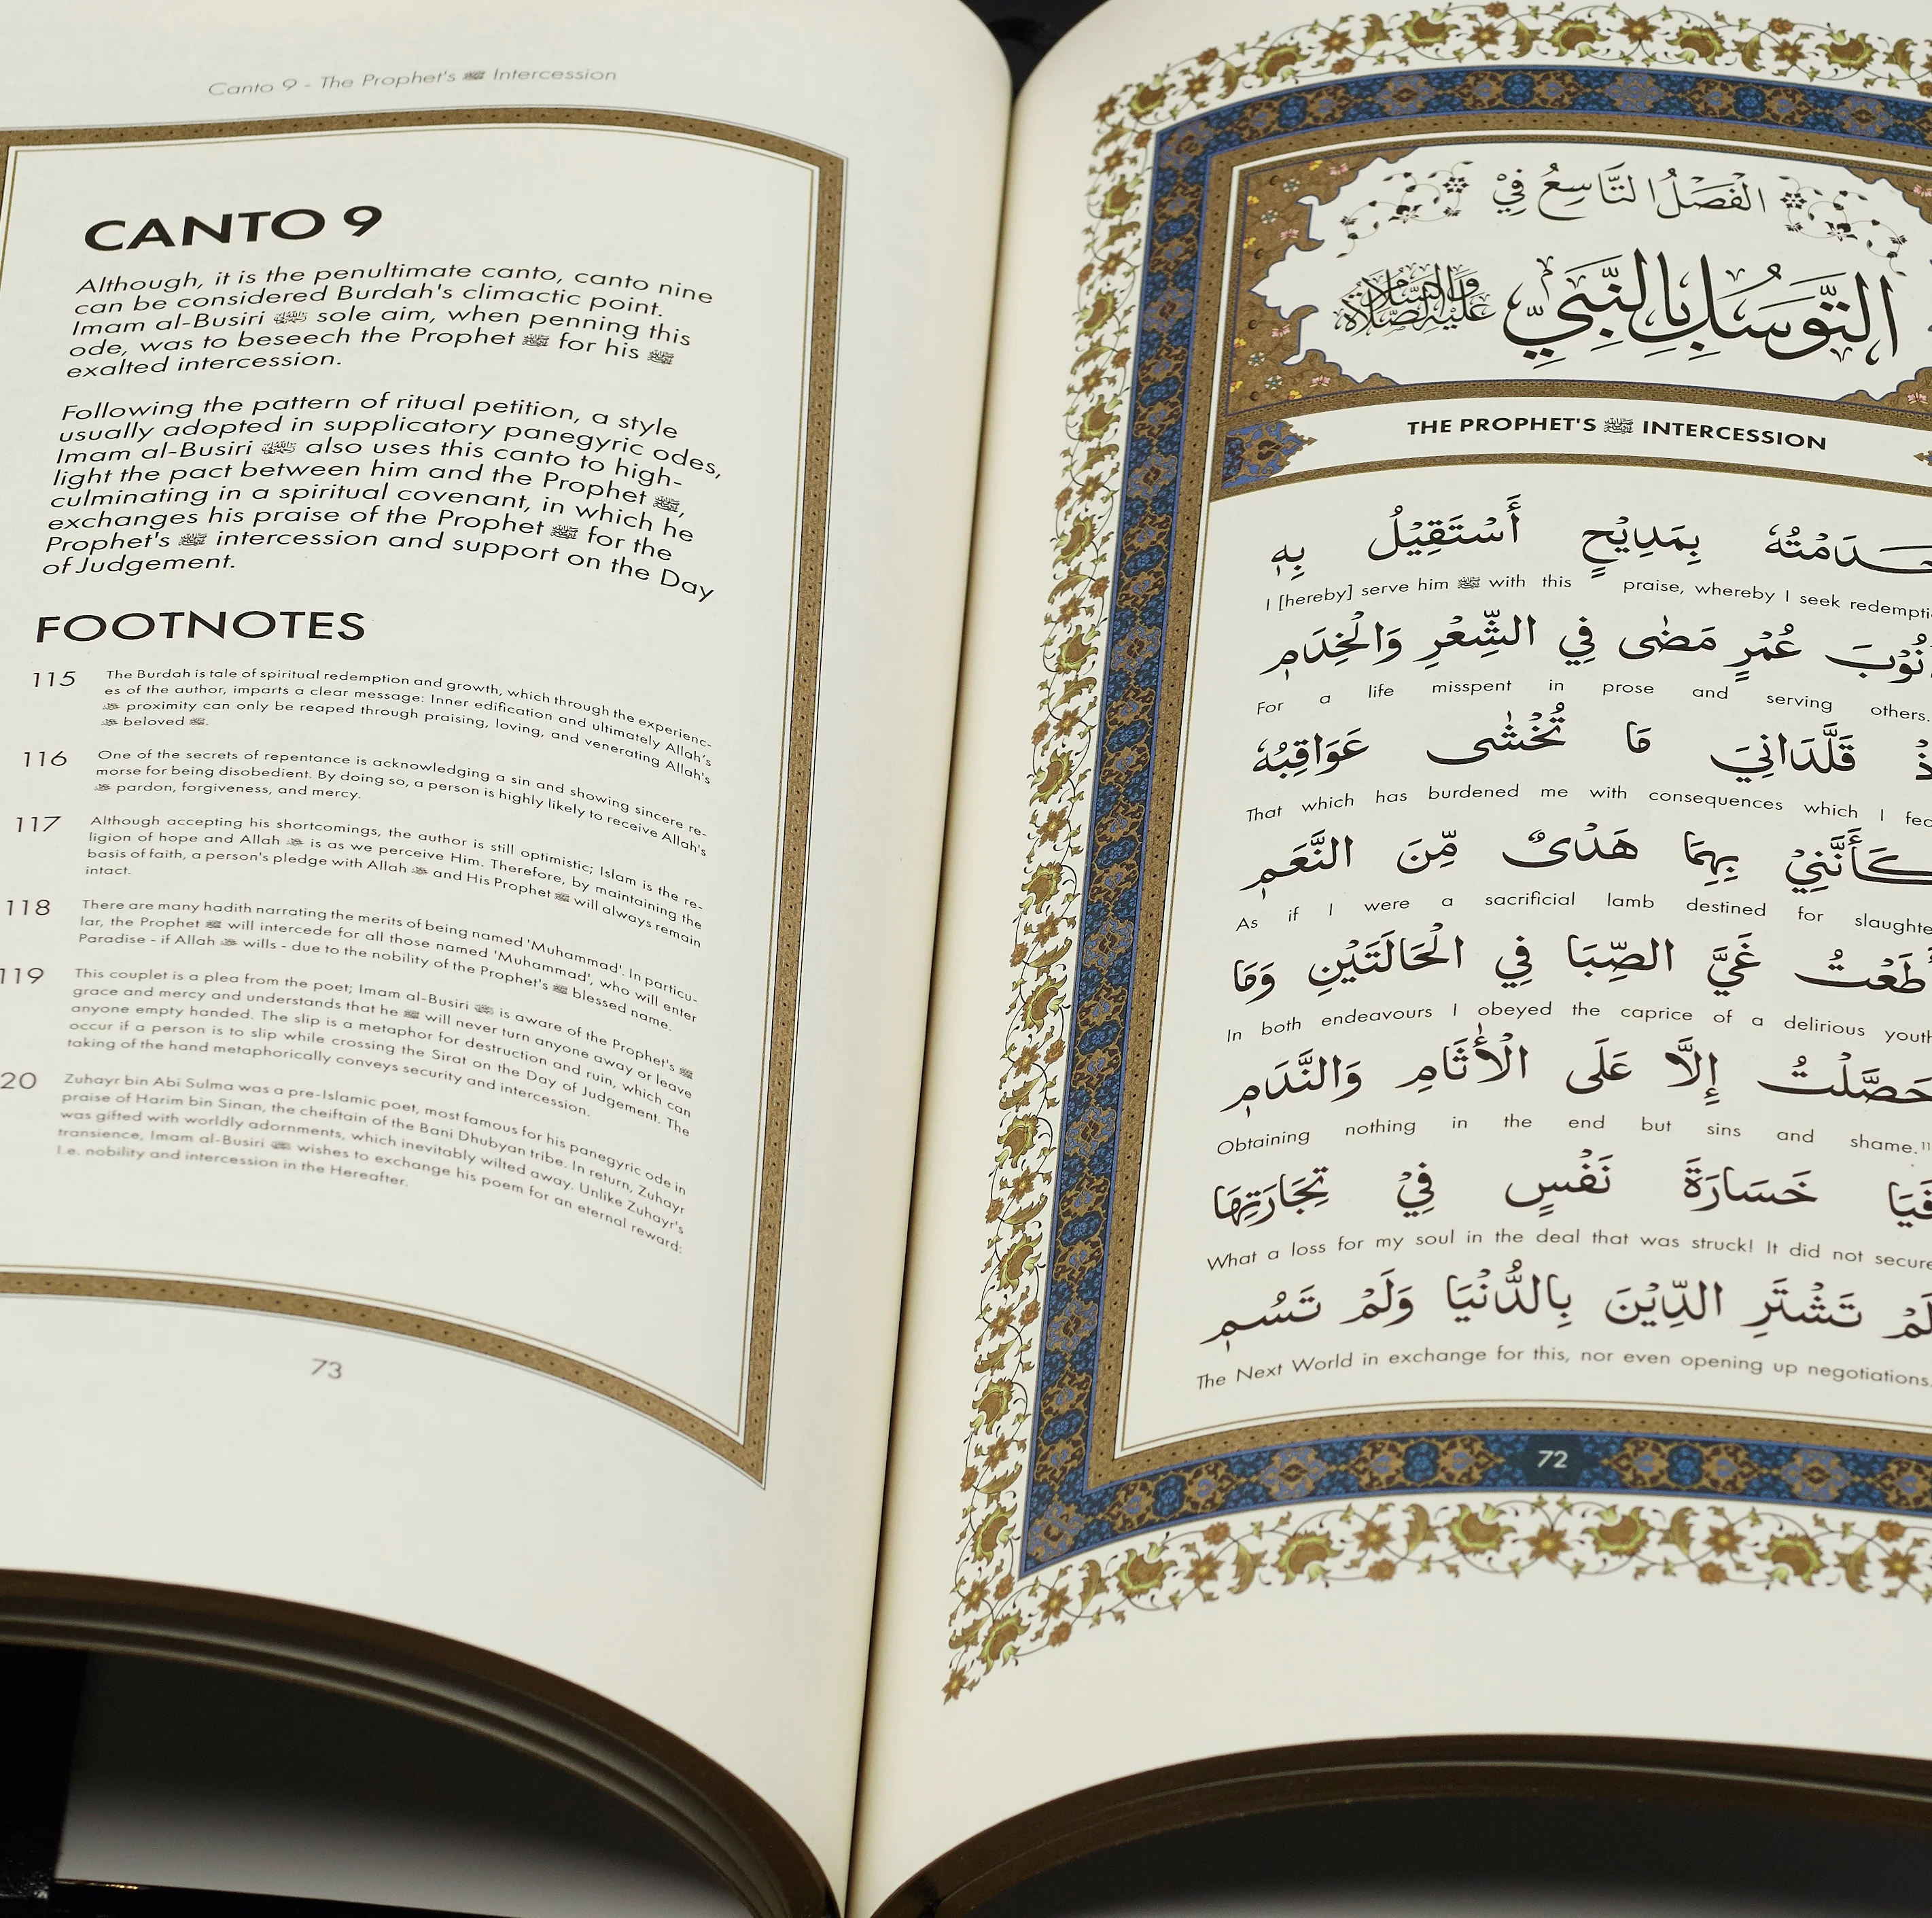 الْفَصْلُ التَّاسِعُ فِيْ
التَّوَسُلِ بِالنَّبِيِّ عَلَيْهِ الصَّلَاةُ وَالسَّلَامُ
THE PROPHET'S ﷺ INTERCESSION
بِمَدِيْحٍ أَسْتَقِيْلُ بِهِ
I [hereby] serve him ﷺ with this praise, whereby I seek
عُمْرٍ مَضٰى فِي الشِّعْرِ وَالْخِدَمِ
For a life misspent in prose and serving others.
قَلَّدَانِيَ مَا تُخْشٰى عَوَاقِبُهُ
That which has burdened me with consequences which I
كَأَنَّنِيْ بِهِمَا هَدْىٌ مِّنَ النَّعَمِ
As if I were a sacrificial lamb destined for
غَيَّ الصِّبَا فِي الْحَالَتَيْنِ وَمَا
In both endeavours I obeyed the caprice of a delirious youth
حَصَّلْتُ إِلَّا عَلَى الْأٰثَامِ وَالنَّدَمِ
Obtaining nothing in the end but sins and shame.
فَيَا خَسَارَةَ نَفْسٍ فِيْ تِجَارَتِهَا
What a loss for my soul in the deal that was struck! It did not secure
لَمْ تَشْتَرِ الدِّيْنَ بِالدُّنْيَا وَلَمْ تَسُمِ
The Next World in exchange for this, nor even opening up negotiations.
72
Canto 9 - The Prophet's ﷺ Intercession
CANTO 9
Although, it is the penultimate canto, canto nine
can be considered Burdah's climactic point.
Imam al-Busiri sole aim, when penning this
ode, was to beseech the Prophet ﷺ for his ﷺ
exalted intercession.
Following the pattern of ritual petition, a style
usually adopted in supplicatory panegyric odes,
Imam al-Busiri also uses this canto to high-
light the pact between him and the Prophet ﷺ,
culminating in a spiritual covenant, in which he
exchanges his praise of the Prophet ﷺ for the
Prophet's ﷺ intercession and support on the Day
of Judgement.
FOOTNOTES
115 The Burdah is tale of spiritual redemption and growth, which through the experienc-
es of the author, imparts a clear message: Inner edification and ultimately Allah's
ﷻ proximity can only be reaped through praising, loving, and venerating Allah's
ﷻ beloved ﷺ.
116 One of the secrets of repentance is acknowledging a sin and showing sincere re-
morse for being disobedient. By doing so, a person is highly likely to receive Allah's
ﷻ pardon, forgiveness, and mercy.
117 Although accepting his shortcomings, the author is still optimistic; Islam is the re-
ligion of hope and Allah ﷻ is as we perceive Him. Therefore, by maintaining the
basis of faith, a person's pledge with Allah ﷻ and His Prophet ﷺ will always remain
intact.
118 There are many hadith narrating the merits of being named 'Muhammad'. In particu-
lar, the Prophet ﷺ will intercede for all those named 'Muhammad', who will enter
Paradise - if Allah ﷻ wills - due to the nobility of the Prophet's ﷺ blessed name.
119 This couplet is a plea from the poet; Imam al-Busiri is aware of the Prophet's ﷺ
grace and mercy and understands that he ﷺ will never turn anyone away or leave
anyone empty handed. The slip is a metaphor for destruction and ruin, which can
occur if a person is to slip while crossing the Sirat on the Day of Judgement. The
taking of the hand metaphorically conveys security and intercession.
20 Zuhayr bin Abi Sulma was a pre-Islamic poet, most famous for his panegyric ode in
praise of Harim bin Sinan, the cheiftain of the Bani Dhubyan tribe. In return, Zuhayr
was gifted with worldly adornments, which inevitably wilted away. Unlike Zuhayr's
transience, Imam al-Busiri wishes to exchange his poem for an eternal reward:
I.e. nobility and intercession in the Hereafter.
73